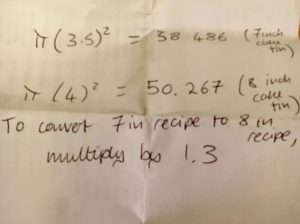 π(3.5)² = 38.486 (7 inch cake tin)
π(4)² = 50.267 (8 inch cake tin)
To convert 7 in recipe to 8 in recipe,
multiply by 1.3